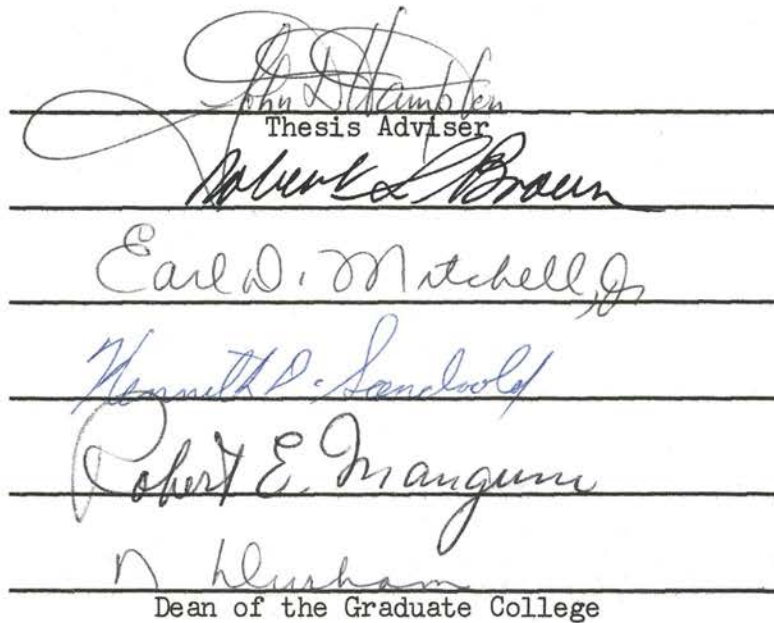 John D. Hampton
Thesis Adviser
Robert S. Brown
Earl D. Mitchell, Jr
Kenneth D. Sandvold
Robert E. Mangum
N Durham
Dean of the Graduate College